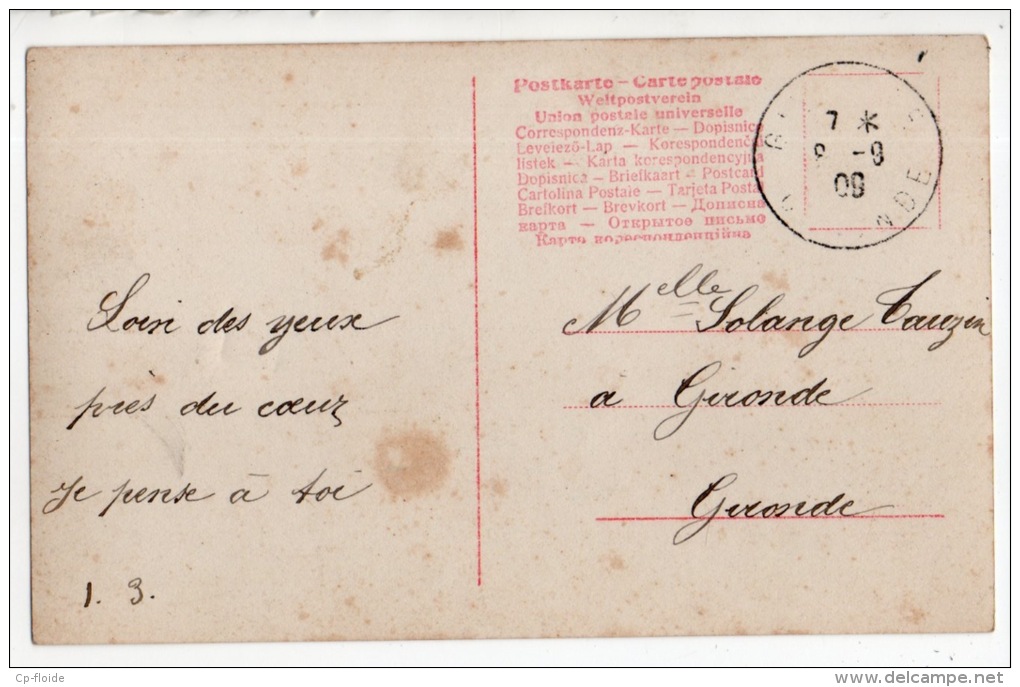 Postkarte – Carte postale
Weltpostverein
Union postale universelle
Correspondenz-Karte — Dopisnice
Levelező-Lap — Korespondenční
listek — Karta korespondencyjna
Dopisnica — Briefkaart – Postcard
Cartolina Postale — Tarjeta Postal
Brefkort — Brevkort — Дописна
карта — Открытое письмо
Карта кореспонденційна
7 *
8 -9
09
NDE
Loin des yeux
près du cœur
Je pense à toi
1. 3.
Melle Solange Tauzin
a Gironde
Gironde
Cp-floide
www.delcampe.net